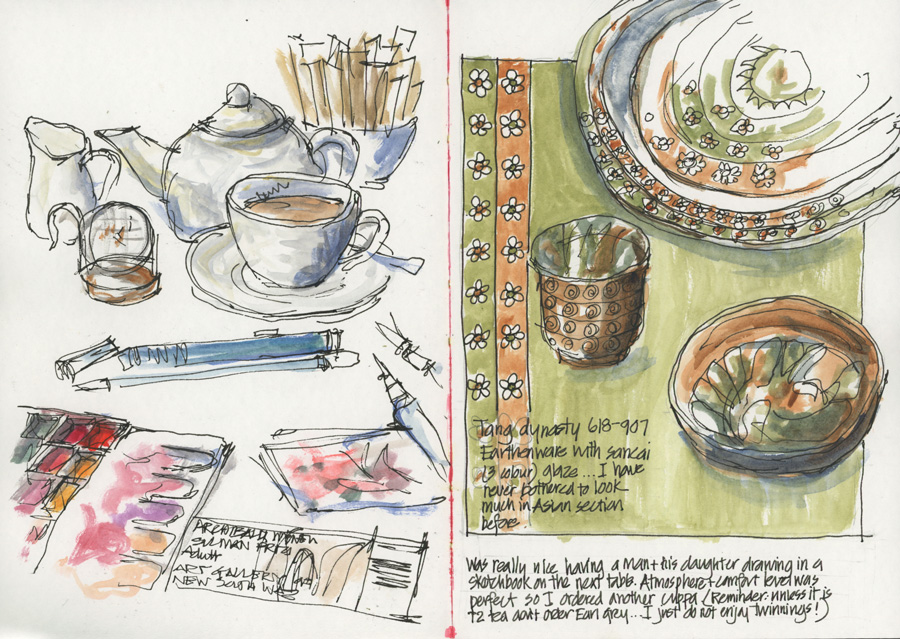 ARCHIBALD WYNNE
SULMAN PRIZE
Adult
ART GALLERY
NEW SOUTH WALES
Tang dynasty 618-907
Earthenware with sancai
(3 colour) glaze... I have
never bothered to look
much in Asian section
before.
Was really nice having a man + his daughter drawing in a
sketchbook on the next table. Atmosphere + comfort level was
perfect so I ordered another cuppa (Reminder: unless it is
T2 tea dont order Earl Grey... I just do not enjoy Twinnings!)